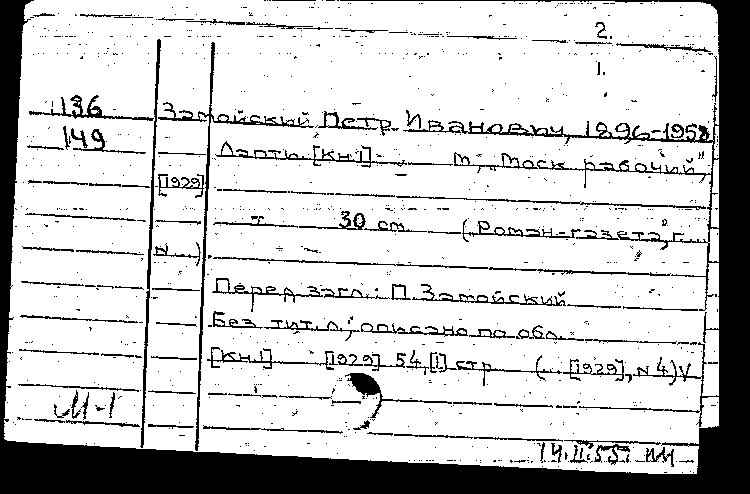 2.
1.
136
149
Замойский Петр Иванович, 1896-1958
Лапти. [Кн.1]- М., „Моск. рабочий",
[1929]
т 30 см. („Роман-газета", г...
N ...)
Перед загл.: П. Замойский
Без тит. л.; описано по обл.
[Кн.1] [1929] 54,[1] стр (... [1929], N 4) V
М-1
14.II.55.